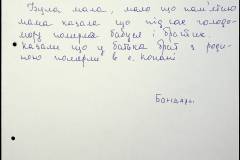 Була мала, мало що пам'ятаю
мама казала що під час голодо-
мору померла бабуся і братик.
казали що у батька брат з роди-
ною померли в с. Копані
Бондарь